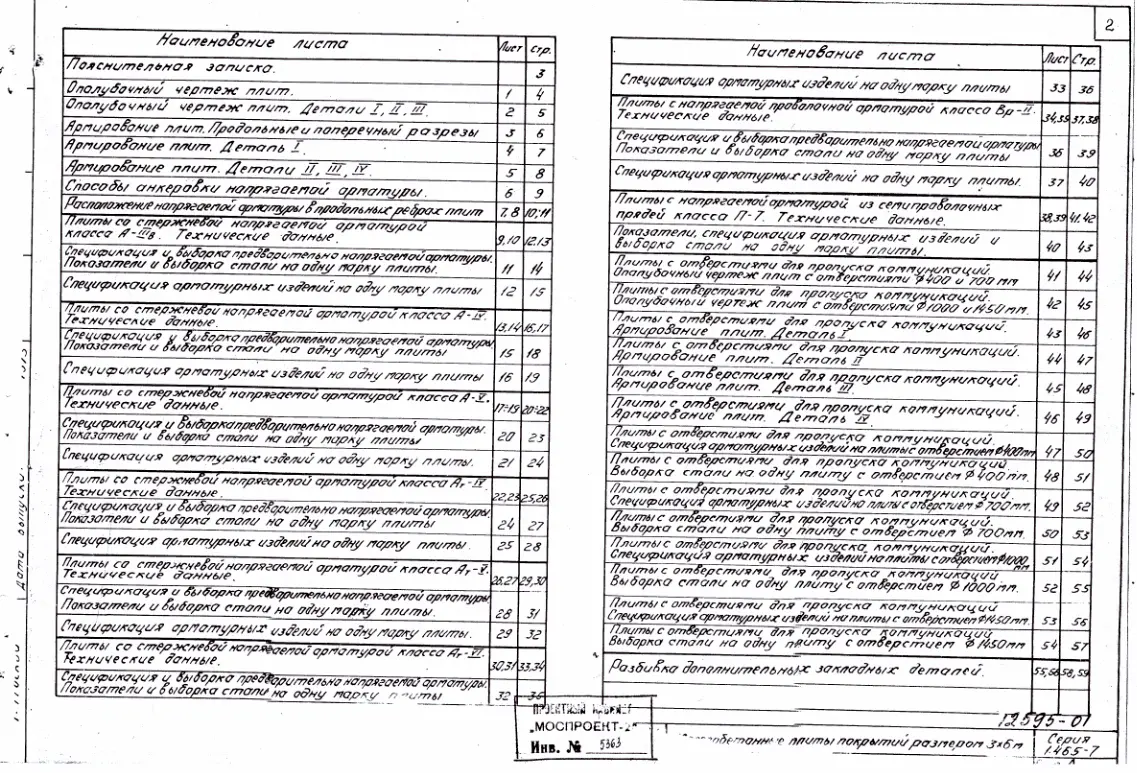 2
Наименование листа Лист Стр.
Пояснительная записка. 3
Опалубочный чертеж плит. 1 4
Опалубочный чертеж плит. Детали I, II, III. 2 5
Армирование плит. Продольные и поперечный разрезы 3 6
Армирование плит. Деталь I. 4 7
Армирование плит. Детали II, III, IV. 5 8
Способы анкеровки напрягаемой арматуры. 6 9
Расположение напрягаемой арматуры в продольных ребрах плит 7, 8 10; 11
Плиты со стержневой напрягаемой арматурой
класса А-IIIв. Технические данные. 9,10 12,13
Спецификация и выборка предварительно напрягаемой арматуры.
Показатели и выборка стали на одну марку плиты. 11 14
Спецификация арматурных изделий на одну марку плиты 12 15
Плиты со стержневой напрягаемой арматурой класса А-IV.
Технические данные. 13,14 16,17
Спецификация и выборка предварительно напрягаемой арматуры
Показатели и выборка стали на одну марку плиты 15 18
Спецификация арматурных изделий на одну марку плиты 16 19
Плиты со стержневой напрягаемой арматурой класса А-V.
Технические данные. 17÷19 20÷22
Спецификация и выборка предварительно напрягаемой арматуры.
Показатели и выборка стали на одну марку плиты 20 23
Спецификация арматурных изделий на одну марку плиты. 21 24
Плиты со стержневой напрягаемой арматурой класса Ат-IV
Технические данные. 22,23 25,26
Спецификация и выборка предварительно напрягаемой арматуры.
Показатели и выборка стали на одну марку плиты 24 27
Спецификация арматурных изделий на одну марку плиты. 25 28
Плиты со стержневой напрягаемой арматурой класса Ат-V.
Технические данные. 26,27 29,30
Спецификация и выборка предварительно напрягаемой арматуры
Показатели и выборка стали на одну марку плиты. 28 31
Спецификация арматурных изделий на одну марку плиты. 29 32
Плиты со стержневой напрягаемой арматурой класса Ат-VI.
Технические данные. 30,31 33,34
Спецификация и выборка предварительно напрягаемой арматуры.
Показатели и выборка стали на одну марку плиты 32 35
Наименование листа Лист Стр.
Спецификация арматурных изделий на одну марку плиты 33 36
Плиты с напрягаемой проволочной арматурой класса Вр-II.
Технические данные. 34,35 37,38
Спецификация и выборка предварительно напрягаемой арматуры
Показатели и выборка стали на одну марку плиты 36 39
Спецификация арматурных изделий на одну марку плиты. 37 40
Плиты с напрягаемой арматурой из семипроволочных
прядей класса П-7. Технические данные. 38,39 41,42
Показатели, спецификация арматурных изделий и
выборка стали на одну марку плиты. 40 43
Плиты с отверстиями для пропуска коммуникаций.
Опалубочный чертеж плит с отверстиями Ф400 и 700 мм 41 44
Плиты с отверстиями для пропуска коммуникаций.
Опалубочный чертеж плит с отверстиями Ф1000 и 1450 мм. 42 45
Плиты с отверстиями для пропуска коммуникаций.
Армирование плит. Деталь I. 43 46
Плиты с отверстиями для пропуска коммуникаций.
Армирование плит. Деталь II 44 47
Плиты с отверстиями для пропуска коммуникаций.
Армирование плит. Деталь III. 45 48
Плиты с отверстиями для пропуска коммуникаций.
Армирование плит. Деталь IV. 46 49
Плиты с отверстиями для пропуска коммуникаций.
Спецификация арматурных изделий на плиты с отверстием Ф400мм 47 50
Плиты с отверстиями для пропуска коммуникаций
Выборка стали на одну плиту с отверстием Ф400мм. 48 51
Плиты с отверстиями для пропуска коммуникаций.
Спецификация арматурных изделий на плиты с отверстием Ф700мм. 49 52
Плиты с отверстиями для пропуска коммуникаций.
Выборка стали на одну плиту с отверстием Ф700мм. 50 53
Плиты с отверстиями для пропуска коммуникаций.
Спецификация арматурных изделий на плиты с отверстием Ф1000 51 54
Плиты с отверстиями для пропуска коммуникаций
Выборка стали на одну плиту с отверстием Ф1000мм. 52 55
Плиты с отверстиями для пропуска коммуникаций
Спецификация арматурных изделий на плиты с отверстием Ф1450мм. 53 56
Плиты с отверстиями для пропуска коммуникаций
Выборка стали на одну плиту с отверстием Ф1450мм 54 57
Разбивка дополнительных закладных деталей. 55,56 58,59
Дата выпуска:
„МОСПРОЕКТ-2"
Инв. № 5363
12595-01
плиты покрытий размером 3х6м
Серия
1.465-7